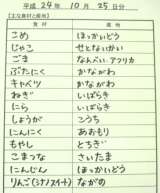 平成 24年 10月 25日分
【主な食材と産地】
食材 産地
こめ ほっかいどう
じゃこ せとないかい
ごま なんべい・アフリカ
ぶたにく かながわ
キャベツ かながわ
ねぎ いばらき
にら いばらき
しょうが こうち
にんにく あおもり
もやし とちぎ
こまつな さいたま
にんじん ほっかいどう
りんご(シナノスイート) ながの